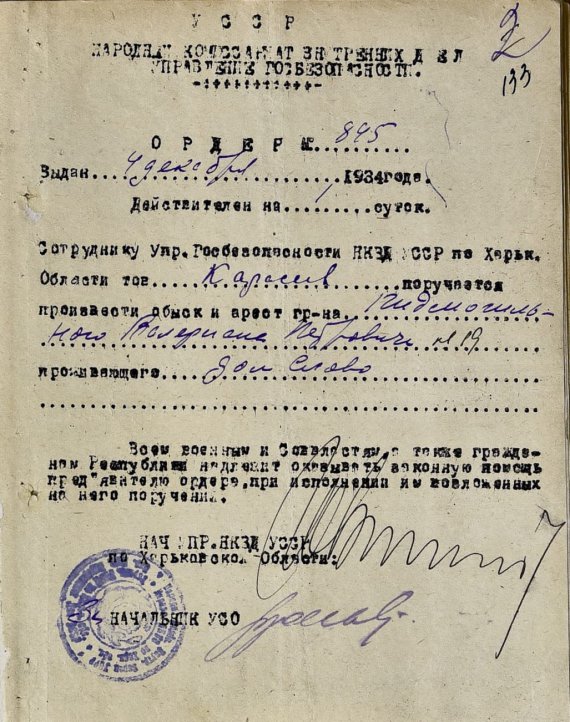 2
133
У С С Р
НАРОДНЫЙ КОМИССАРИАТ ВНУТРЕННИХ ДЕЛ
УПРАВЛЕНИЕ ГОСБЕЗОПАСНОСТИ.
О Р Д Е Р № 845
Выдан 4 декабря 1934 года.
Действителен на 1 суток.
Сотруднику Упр. Госбезопасности НКВД УССР по Харьк.
Области тов. Карасев поручается
произвести обыск и арест гр-на. Пидмогиль-
ного Валериана Петровича
проживающего Дом Слово
Всем военным и Совластям, а также гражда-
нам Республики надлежит оказывать законную помощь
пред"явителю ордера, при исполнении им возложенных
на него поручений.
НАЧ УПР. НКВД УССР
по Харьковской Области:
За НАЧАЛЬНИК УСО